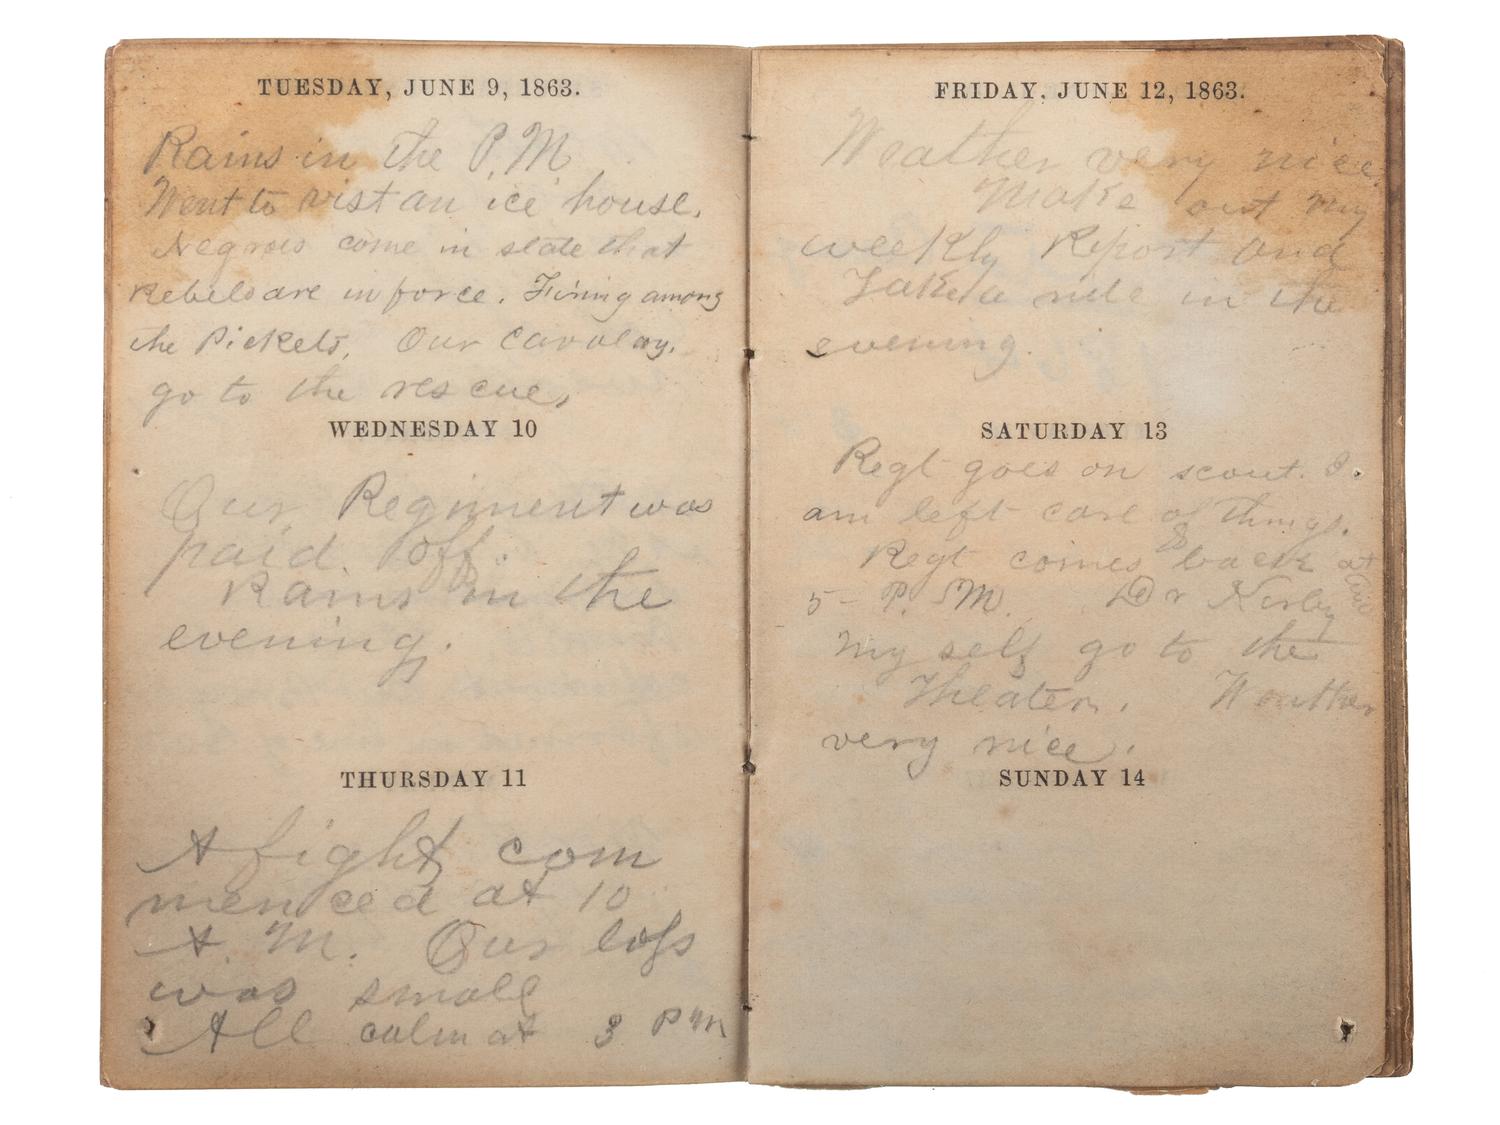 TUESDAY, JUNE 9, 1863.
Rains in the P.M
Went to vist an ice house.
Negroes come in state that
Rebels are in force. Firing among
the Pickets. Our Cavalry.
go to the rescue,
WEDNESDAY 10
Our Regiment was
paid off.
Rains in the
evening.
THURSDAY 11
A fight com
menced at 10
A. M. Our loss
was small
All calm at 3 PM
FRIDAY, JUNE 12, 1863.
Weather very nice.
Make out my
weekly Report and
Take a ride in the
evening.
SATURDAY 13
Regt goes on scout. I.
am left care of things.
Regt comes back at
5- P. M. Dr Kirby and
My self go to the
Theater. Weather
very nice.
SUNDAY 14